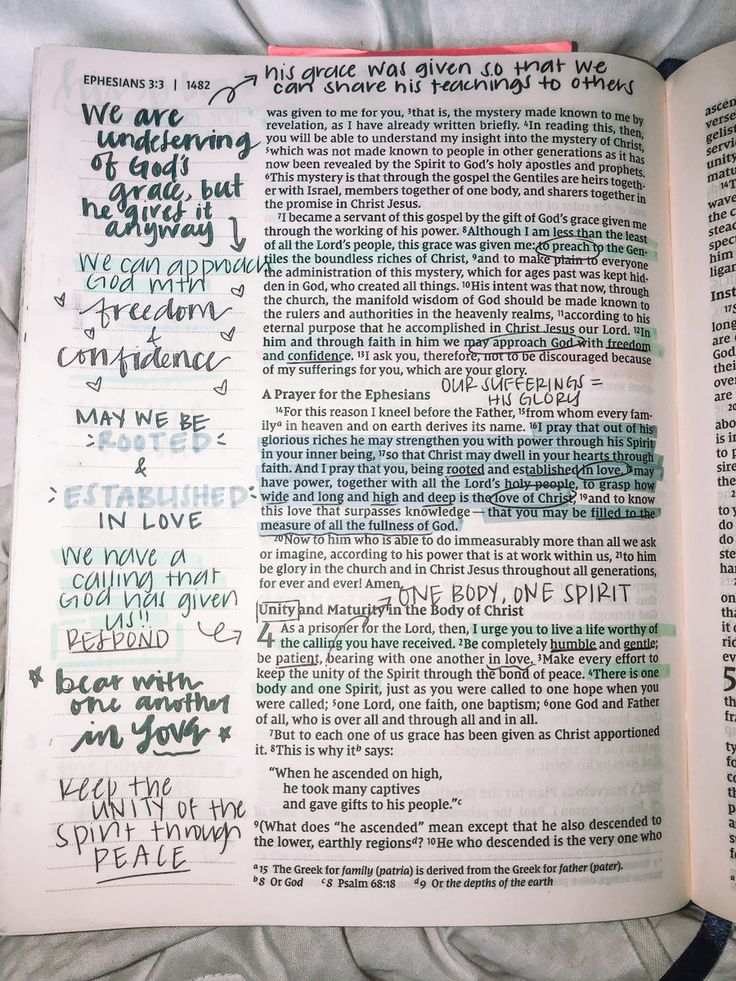 EPHESIANS 3:3 | 1482
his grace was given so that we
can share his teachings to others
We are
undeserving
of God's
grace, but
he gives it
anyway
We can approach
God with
freedom
&
confidence
MAY WE BE
ROOTED
&
ESTABLISHED
IN LOVE
We have a
calling that
God has given
us!!
RESPOND
bear with
one another
in love
Keep the
UNITY of the
spirit through
PEACE
was given to me for you, ³that is, the mystery made known to me by
revelation, as I have already written briefly. ⁴In reading this, then,
you will be able to understand my insight into the mystery of Christ,
⁵which was not made known to people in other generations as it has
now been revealed by the Spirit to God's holy apostles and prophets.
⁶This mystery is that through the gospel the Gentiles are heirs togeth-
er with Israel, members together of one body, and sharers together in
the promise in Christ Jesus.
⁷I became a servant of this gospel by the gift of God's grace given me
through the working of his power. ⁸Although I am less than the least
of all the Lord's people, this grace was given me: to preach to the Gen-
tiles the boundless riches of Christ, ⁹and to make plain to everyone
the administration of this mystery, which for ages past was kept hid-
den in God, who created all things. ¹⁰His intent was that now, through
the church, the manifold wisdom of God should be made known to
the rulers and authorities in the heavenly realms, ¹¹according to his
eternal purpose that he accomplished in Christ Jesus our Lord. ¹²In
him and through faith in him we may approach God with freedom
and confidence. ¹³I ask you, therefore, not to be discouraged because
of my sufferings for you, which are your glory.
OUR SUFFERINGS =
HIS GLORY
A Prayer for the Ephesians
¹⁴For this reason I kneel before the Father, ¹⁵from whom every fam-
ilyᵃ in heaven and on earth derives its name. ¹⁶I pray that out of his
glorious riches he may strengthen you with power through his Spirit
in your inner being, ¹⁷so that Christ may dwell in your hearts through
faith. And I pray that you, being rooted and established in love, ¹⁸may
have power, together with all the Lord's holy people, to grasp how
wide and long and high and deep is the love of Christ, ¹⁹and to know
this love that surpasses knowledge — that you may be filled to the
measure of all the fullness of God.
²⁰Now to him who is able to do immeasurably more than all we ask
or imagine, according to his power that is at work within us, ²¹to him
be glory in the church and in Christ Jesus throughout all generations,
for ever and ever! Amen.
ONE BODY, ONE SPIRIT
Unity and Maturity in the Body of Christ
4 As a prisoner for the Lord, then, I urge you to live a life worthy of
the calling you have received. ²Be completely humble and gentle;
be patient, bearing with one another in love. ³Make every effort to
keep the unity of the Spirit through the bond of peace. ⁴There is one
body and one Spirit, just as you were called to one hope when you
were called; ⁵one Lord, one faith, one baptism; ⁶one God and Father
of all, who is over all and through all and in all.
⁷But to each one of us grace has been given as Christ apportioned
it. ⁸This is why itᵇ says:
"When he ascended on high,
he took many captives
and gave gifts to his people."ᶜ
⁹(What does "he ascended" mean except that he also descended to
the lower, earthly regionsᵈ? ¹⁰He who descended is the very one who
ᵃ15 The Greek for family (patria) is derived from the Greek for father (pater).
ᵇ8 Or God ᶜ8 Psalm 68:18 ᵈ9 Or the depths of the earth